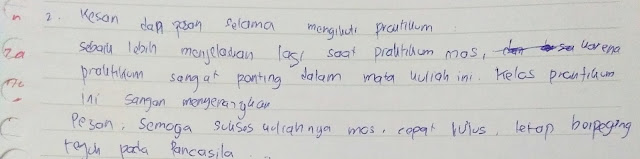 2. Kesan dan pesan selama mengikuti praktikum
sebaik lebih menjelaskan lagi saat praktikum mas, karena
praktikum sangat penting dalam mata kuliah ini. Kelas praktikum
ini sangan menyenangkan
Pesan, semoga sukses kuliahnya mas, cepat lulus, tetap berpegang
teguh pada Pancasila